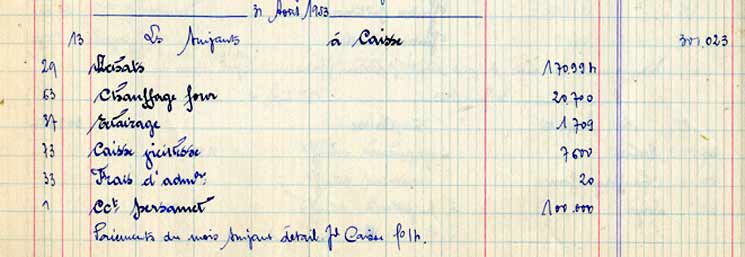 31 Août 1953
13 Les Suivants à Caisse 301.023
29 Achats 170994
63 Chauffage four 20.700
37 Eclairage 1709
73 Caisse 7600
33 Frais d'admon 20
1 Cct personnel 100.000
Paiements du mois suivant détail Jl Caisse fo 14.